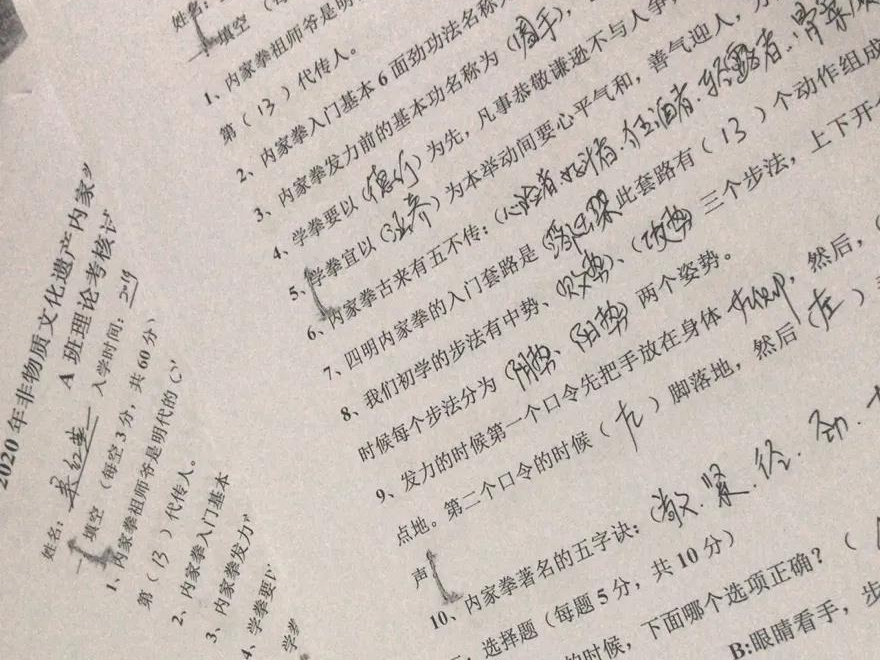 姓名:
填空 (每
1、内家拳祖师爷是明
第（13）代传人。
2、内家拳入门基本 6 面劲功法名称
3、内家拳发力前的基本功名称为（
4、学拳要以（德行）为先，凡事恭敬谦逊不与人争，
5、学拳宜以（涵养）为本举动间要心平气和，善气迎人，
6、内家拳古来有五不传：（心险者.好斗者.狂酒者.轻露者.骨柔
7、四明内家拳的入门套路是 此套路有（13）个动作组成
8、我们初学的步法有中势、败势、（攻势）三个步法，上下开
时候每个步法分为（阴势、阳势）两个姿势。
9、发力的时候第一个口令先把手放在身体 右侧，然后，（
点地。第二个口令的时候（左）脚落地，然后（左）
声
10、内家拳著名的五字诀：（敬.紧.径.劲.
、选择题（每题 5 分，共 10 分）
的时候，下面哪个选项正确？（
B:眼睛看手，步
2020 年非物质文化遗产内家
A 班理论考核
姓名: 入学时间: 2019
填空 （每空 3 分，共 60 分）
1、内家拳祖师爷是明代的（
第（13）代传人。
2、内家拳入门基本
3、内家拳发力
4、学拳要
学拳